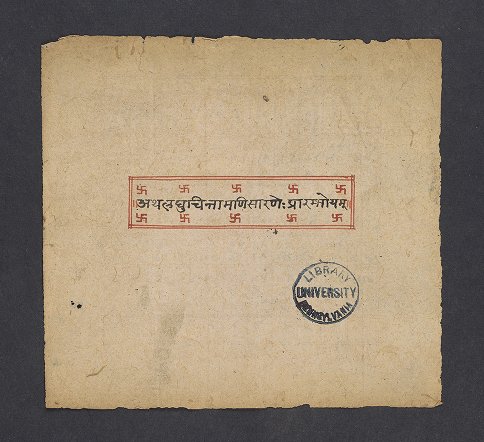 अथलघुचिन्तामणिसारणेःप्रारम्भोयम्
LIBRARY
UNIVERSITY
PENNSYLVANIA